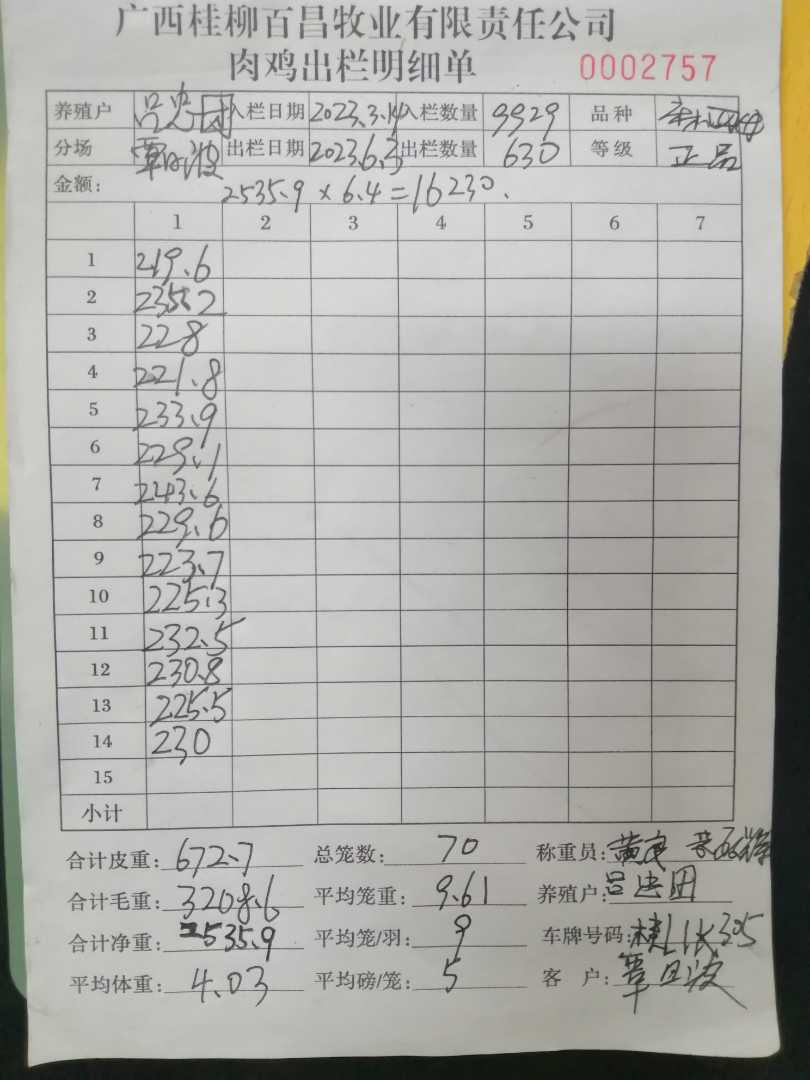 广西桂柳百昌牧业有限责任公司
肉鸡出栏明细单 0002757
养殖户 吕忠团 入栏日期 2023.3.14 入栏数量 9929 品种
分场 覃日波 出栏日期 2023.6.3 出栏数量 630 等级 正品
金额: 2535.9 × 6.4 = 16230.
1 2 3 4 5 6 7
1 219.6
2 235.2
3 228
4 221.8
5 233.9
6 229.1
7 243.6
8 229.6
9 223.7
10 225.3
11 232.5
12 230.8
13 225.5
14 230
15
小计
合计皮重: 672.7 总笼数: 70 称重员: 黄
合计毛重: 3208.6 平均笼重: 9.61 养殖户: 吕忠团
合计净重: 2535.9 平均笼/羽: 9 车牌号码: 桂L1K305
平均体重: 4.03 平均磅/笼: 5 客 户: 覃日波